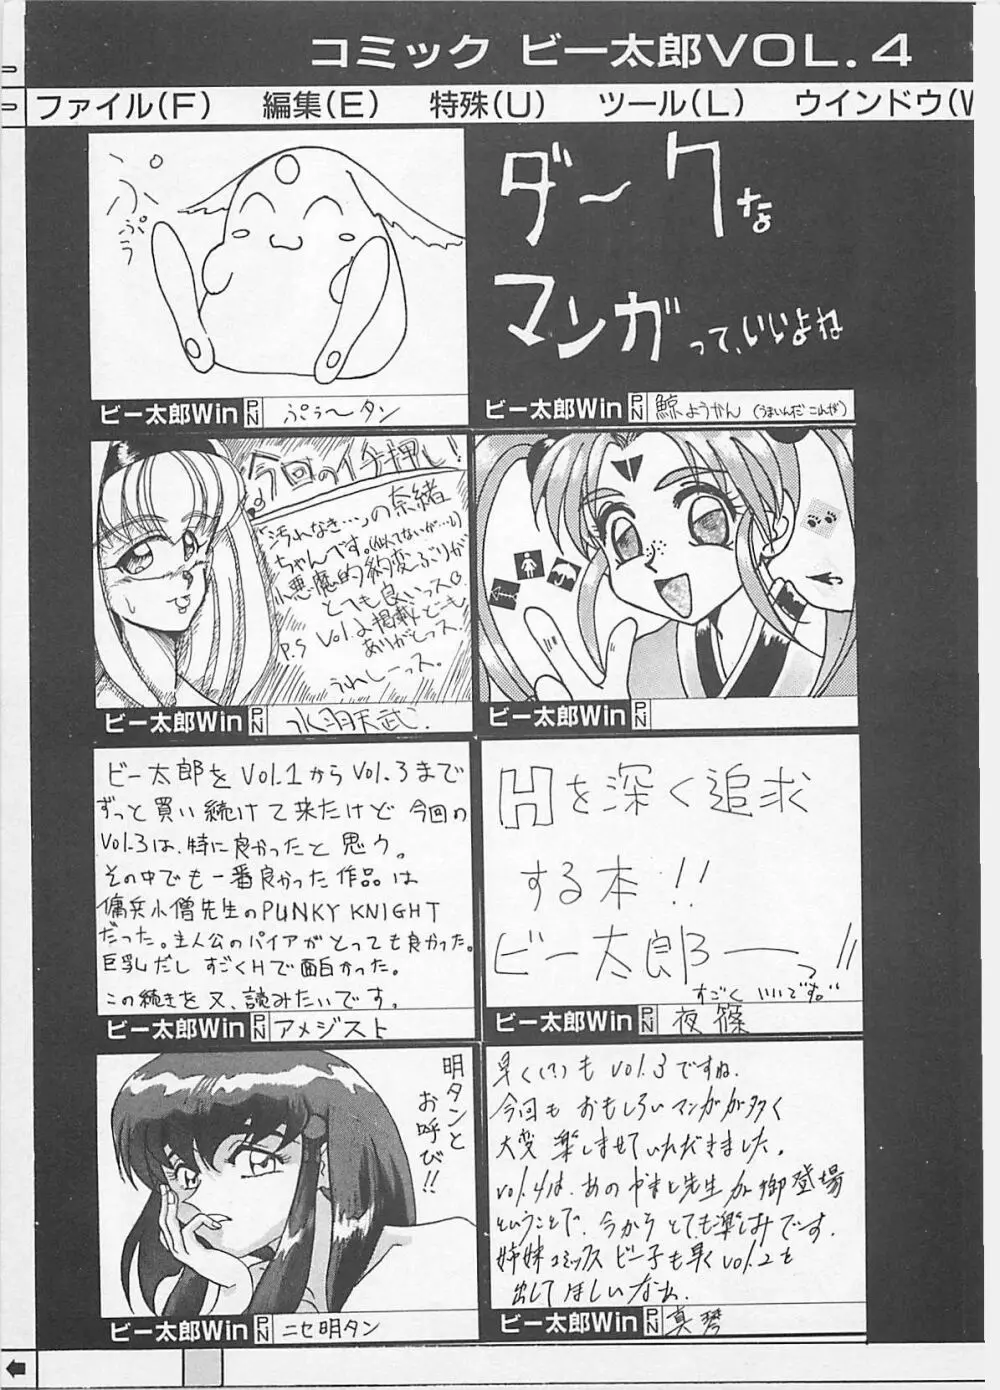 コミック ビー太郎VOL.4
ファイル(F) 編集(E) 特殊(U) ツール(L) ウインドウ(W
ぷぅ
ビー太郎Win PN ぷぅ〜タン
ダークな
マンガって、いいよね
ビー太郎Win PN 鯨ようかん (うまいんだこれが)
今回のイチ押し!
「汚れなき…」の奈緒
ちゃんです。(似てないが…)
小悪魔的豹変ぶりが
とても良いっス
P.S Vol.2掲載ども
ありがとっス
うれしーっス.
ビー太郎Win PN 水羽天武.
ビー太郎Win PN
ビー太郎をVol.1からVol.3まで
ずっと買い続けて来たけど 今回の
Vol.3は、特に良かったと思う。
その中でも一番良かった作品は
傭兵小僧先生のPUNKY KNIGHT
だった。主人公のパイアがとっても良かった。
巨乳だし すごくHで面白かった。
この続きを又、読みたいです。
ビー太郎Win PN アメジスト
Hを深く追求
する本!!
ビー太郎ーっ!!
すごく いいです。
ビー太郎Win PN 夜篠
明タンと
お呼び!!
ビー太郎Win PN ニセ明タン
早く(?)も Vol.3ですね.
今回も おもしろいマンガが多く
大変 楽しませていただきました。
Vol.4は、あの やまと先生が御登場
ということで、今から とても楽しみです.
姉妹コミックス ビー子も早く Vol.2を
出してほしいなぁ.
ビー太郎Win PN 真琴